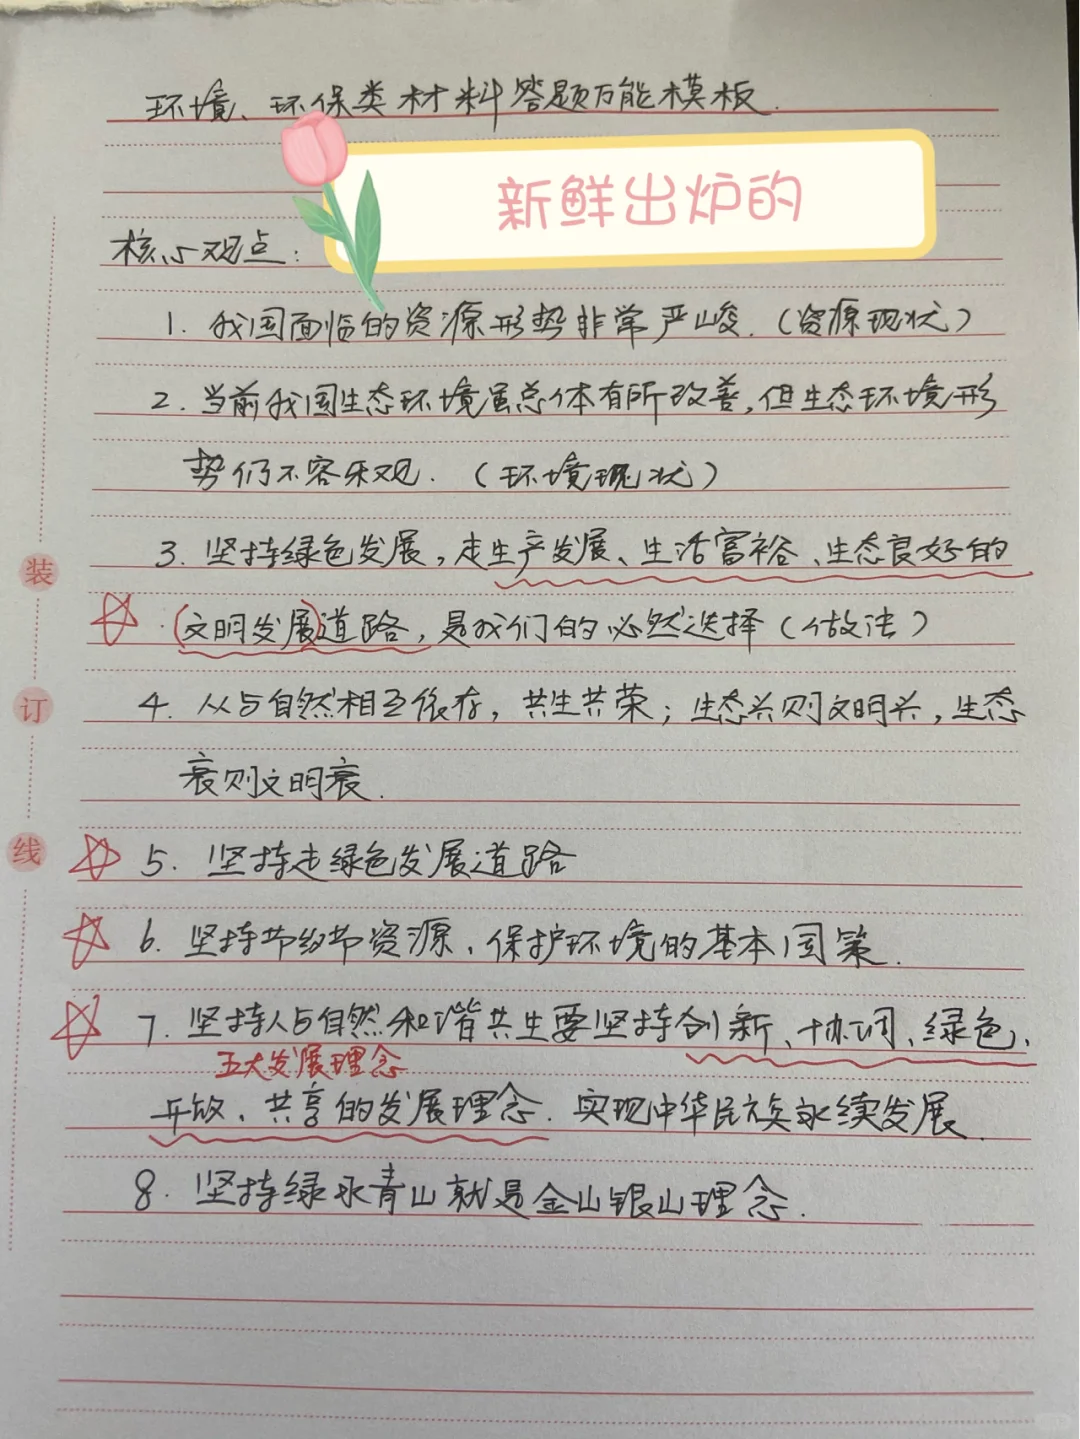 环境、环保类材料答题万能模板.
新鲜出炉的
核心观点:
1. 我国面临的资源形势非常严峻.(资源现状)
2. 当前我国生态环境虽总体有所改善,但生态环境形
势仍不容乐观.(环境现状)
3. 坚持绿色发展,走生产发展、生活富裕、生态良好的
装
(文明发展)道路,是我们的必然选择(做法)
4. 人与自然相互依存,共生共荣;生态兴则文明兴,生态
订
衰则文明衰.
线
5. 坚持走绿色发展道路
6. 坚持节约节资源、保护环境的基本国策.
7. 坚持人与自然和谐共生要坚持创新、协调、绿色、
五大发展理念
开放、共享的发展理念.实现中华民族永续发展.
8. 坚持绿水青山就是金山银山理念.